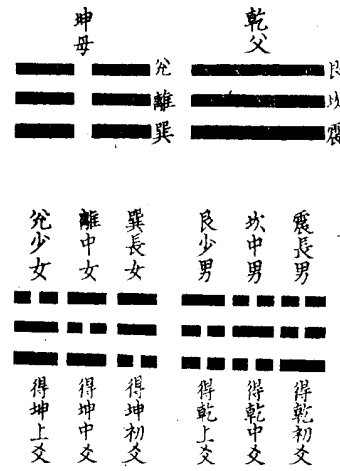 乾父
艮
坎
震
坤母
兌
離
巽
震長男
坎中男
艮少男
巽長女
離中女
兌少女
得乾初爻
得乾中爻
得乾上爻
得坤初爻
得坤中爻
得坤上爻